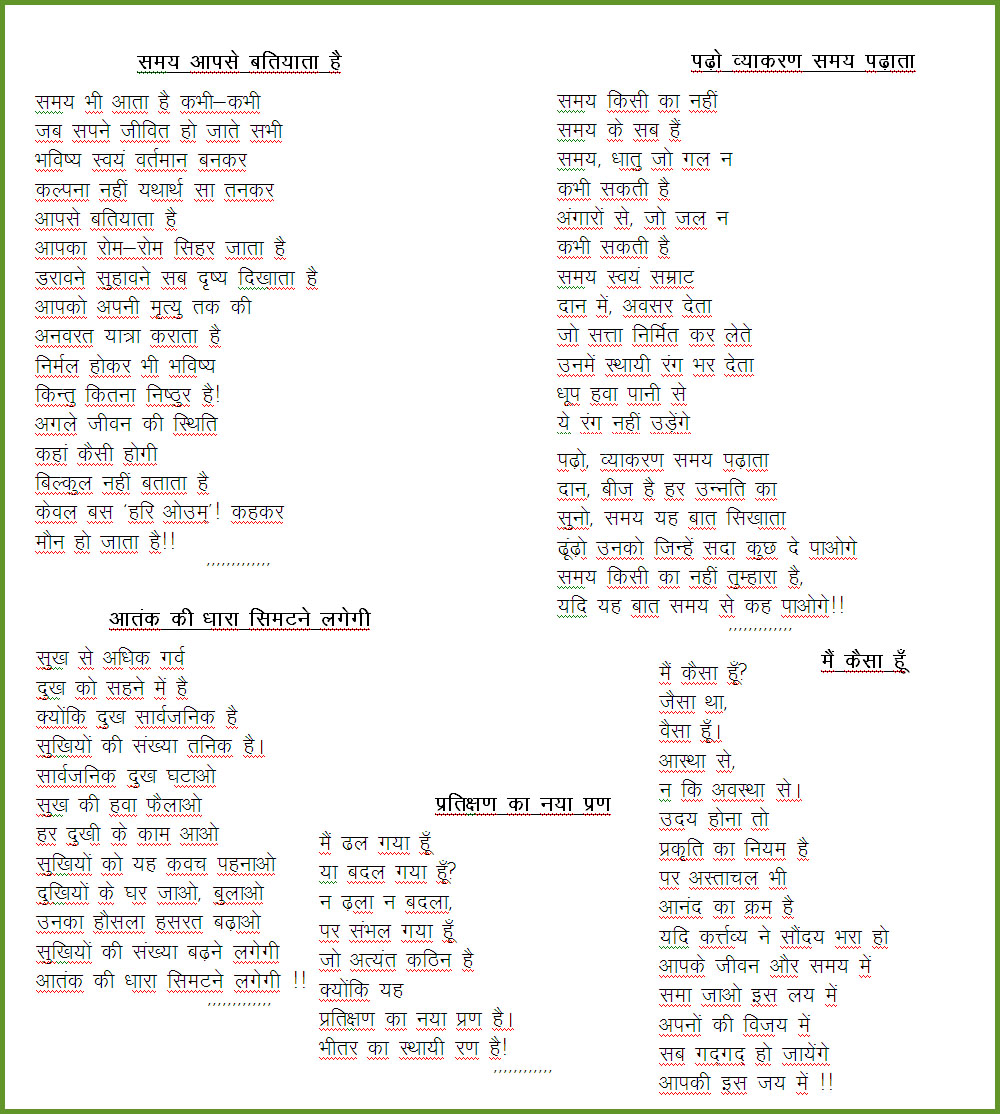 समय आपसे बतियाता है
समय भी आता है कभी–कभी
जब सपने जीवित हो जाते सभी
भविष्य स्वयं वर्तमान बनकर
कल्पना नहीं यथार्थ सा तनकर
आपसे बतियाता है
आपका रोम–रोम सिहर जाता है
डरावने सुहावने सब दृष्य दिखाता है
आपको अपनी मृत्यु तक की
अनवरत यात्रा कराता है
निर्मल होकर भी भविष्य
किन्तु कितना निष्ठुर है!
अगले जीवन की स्थिति
कहां कैसी होगी
बिल्कुल नहीं बताता है
केवल बस 'हरि ओउम'! कहकर
मौन हो जाता है!!
,,,,,,,,,,,,,
पढ़ो व्याकरण समय पढ़ाता
समय किसी का नहीं
समय के सब हैं
समय, धातु जो गल न
कभी सकती है
अंगारों से, जो जल न
कभी सकती है
समय स्वयं सम्राट
दान में, अवसर देता
जो सत्ता निर्मित कर लेते
उनमें स्थायी रंग भर देता
धूप हवा पानी से
ये रंग नहीं उड़ेंगे
पढ़ो, व्याकरण समय पढ़ाता
दान, बीज है हर उन्नति का
सुनो, समय यह बात सिखाता
ढूंढ़ो उनको जिन्हें सदा कुछ दे पाओगे
समय किसी का नहीं तुम्हारा है,
यदि यह बात समय से कह पाओगे!!
,,,,,,,,,,,,,
आतंक की धारा सिमटने लगेगी
सुख से अधिक गर्व
दुख को सहने में है
क्योंकि दुख सार्वजनिक है
सुखियों की संख्या तनिक है।
सार्वजनिक दुख घटाओ
सुख की हवा फैलाओ
हर दुखी के काम आओ
सुखियों को यह कवच पहनाओ
दुखियों के घर जाओ, बुलाओ
उनका हौसला हसरत बढ़ाओ
सुखियों की संख्या बढ़ने लगेगी
आतंक की धारा सिमटने लगेगी !!
,,,,,,,,,,,,,
प्रतिक्षण का नया प्रण
मैं ढल गया हूँ
या बदल गया हूँ?
न ढ़ला न बदला,
पर संभल गया हूँ
जो अत्यंत कठिन है
क्योंकि यह
प्रतिक्षण का नया प्रण है।
भीतर का स्थायी रण है!
,,,,,,,,,,,,
मैं कैसा हूँ
मैं कैसा हूँ?
जैसा था,
वैसा हूँ।
आस्था से,
न कि अवस्था से।
उदय होना तो
प्रकृति का नियम है
पर अस्ताचल भी
आनंद का क्रम है
यदि कर्त्तव्य ने सौंदय भरा हो
आपके जीवन और समय में
समा जाओ इस लय में
अपनों की विजय में
सब गदगद हो जायेंगे
आपकी इस जय में !!